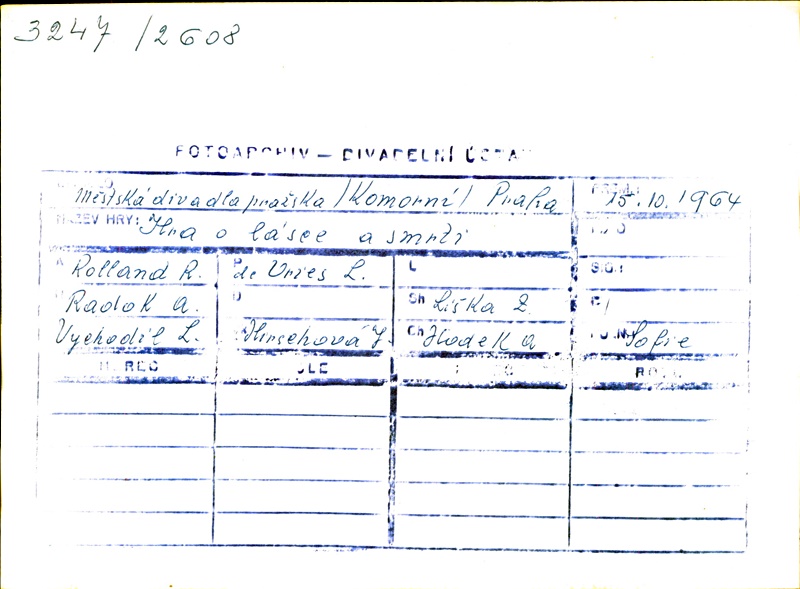 3247 /2608
FOTOARCHIV — DIVADELNÍ ÚSTAV
Městská divadla pražská /Komorní/ Praha 15.10.1964
NÁZEV HRY: Hra o lásce a smrti
A Rolland R. P de Vries L. L
Radok A. Sch Liška Z.
Vychodil L. Hirschová J. Ch Hodek A Sofie
HEREC ROLE